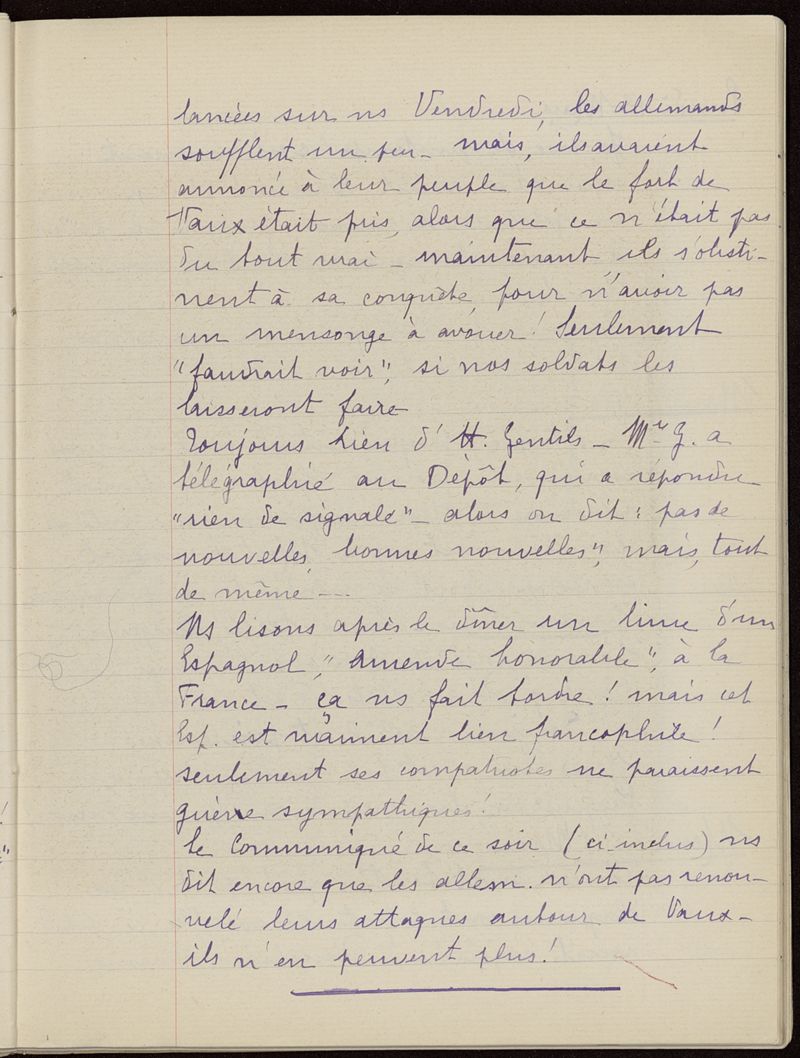 lancées sur ns Vendredi, les allemands
soufflent un peu - mais, ils avaient
annoncé à leur peuple que le fort de
Vaux était pris, alors que ce n'était pas
du tout vrai - maintenant ils s'obsti-
nent à sa conquête, pour n'avoir pas
un mensonge à avouer ! Seulement
"faudrait voir", si nos soldats les
laisseront faire
Toujours rien d' H. Gentils - Mr G. a
télégraphié au Dépôt, qui a répondu
"rien de signalé" - alors on dit : pas de
nouvelles, bonnes nouvelles", mais, tout
de même ---
Ns lisons après le dîner un livre d'un
Espagnol, "Amende honorable", à la
France - ça ns fait tordre ! mais cet
Esp. est vraiment bien francophile !
seulement ses compatriotes ne paraissent
guère sympathiques !
Le Communiqué de ce soir (ci-inclus) ns
dit encore que les allem. n'ont pas renou-
velé leurs attaques autour de Vaux -
ils n'en peuvent plus !